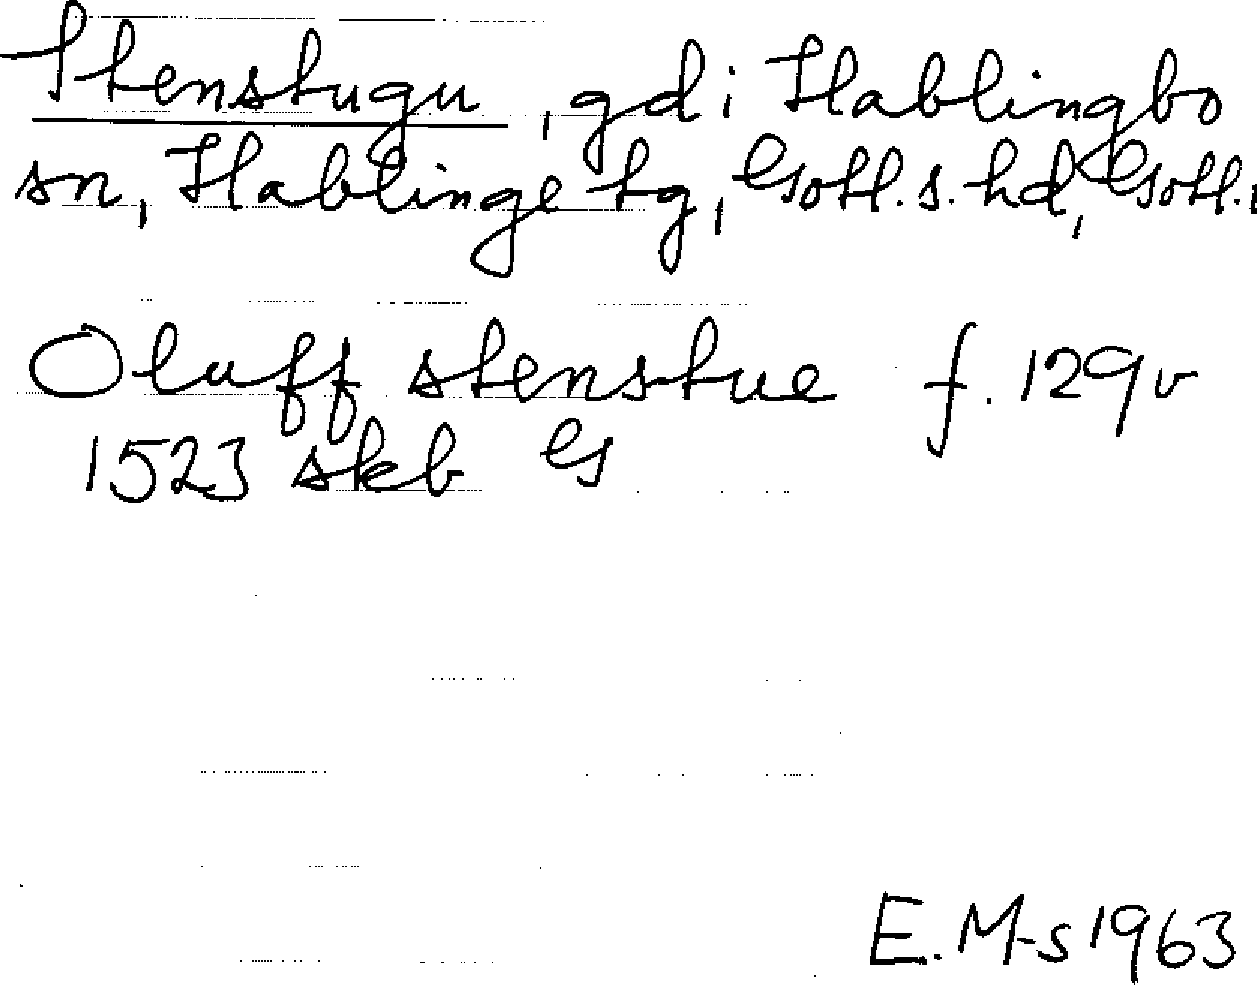 Stenstugu, gd i Hablingbo
sn, Hablinge tg, Gotl. s. hd, Gotl.
Oluff stenstue f. 129v
1523 skb G
E. M-s 1963